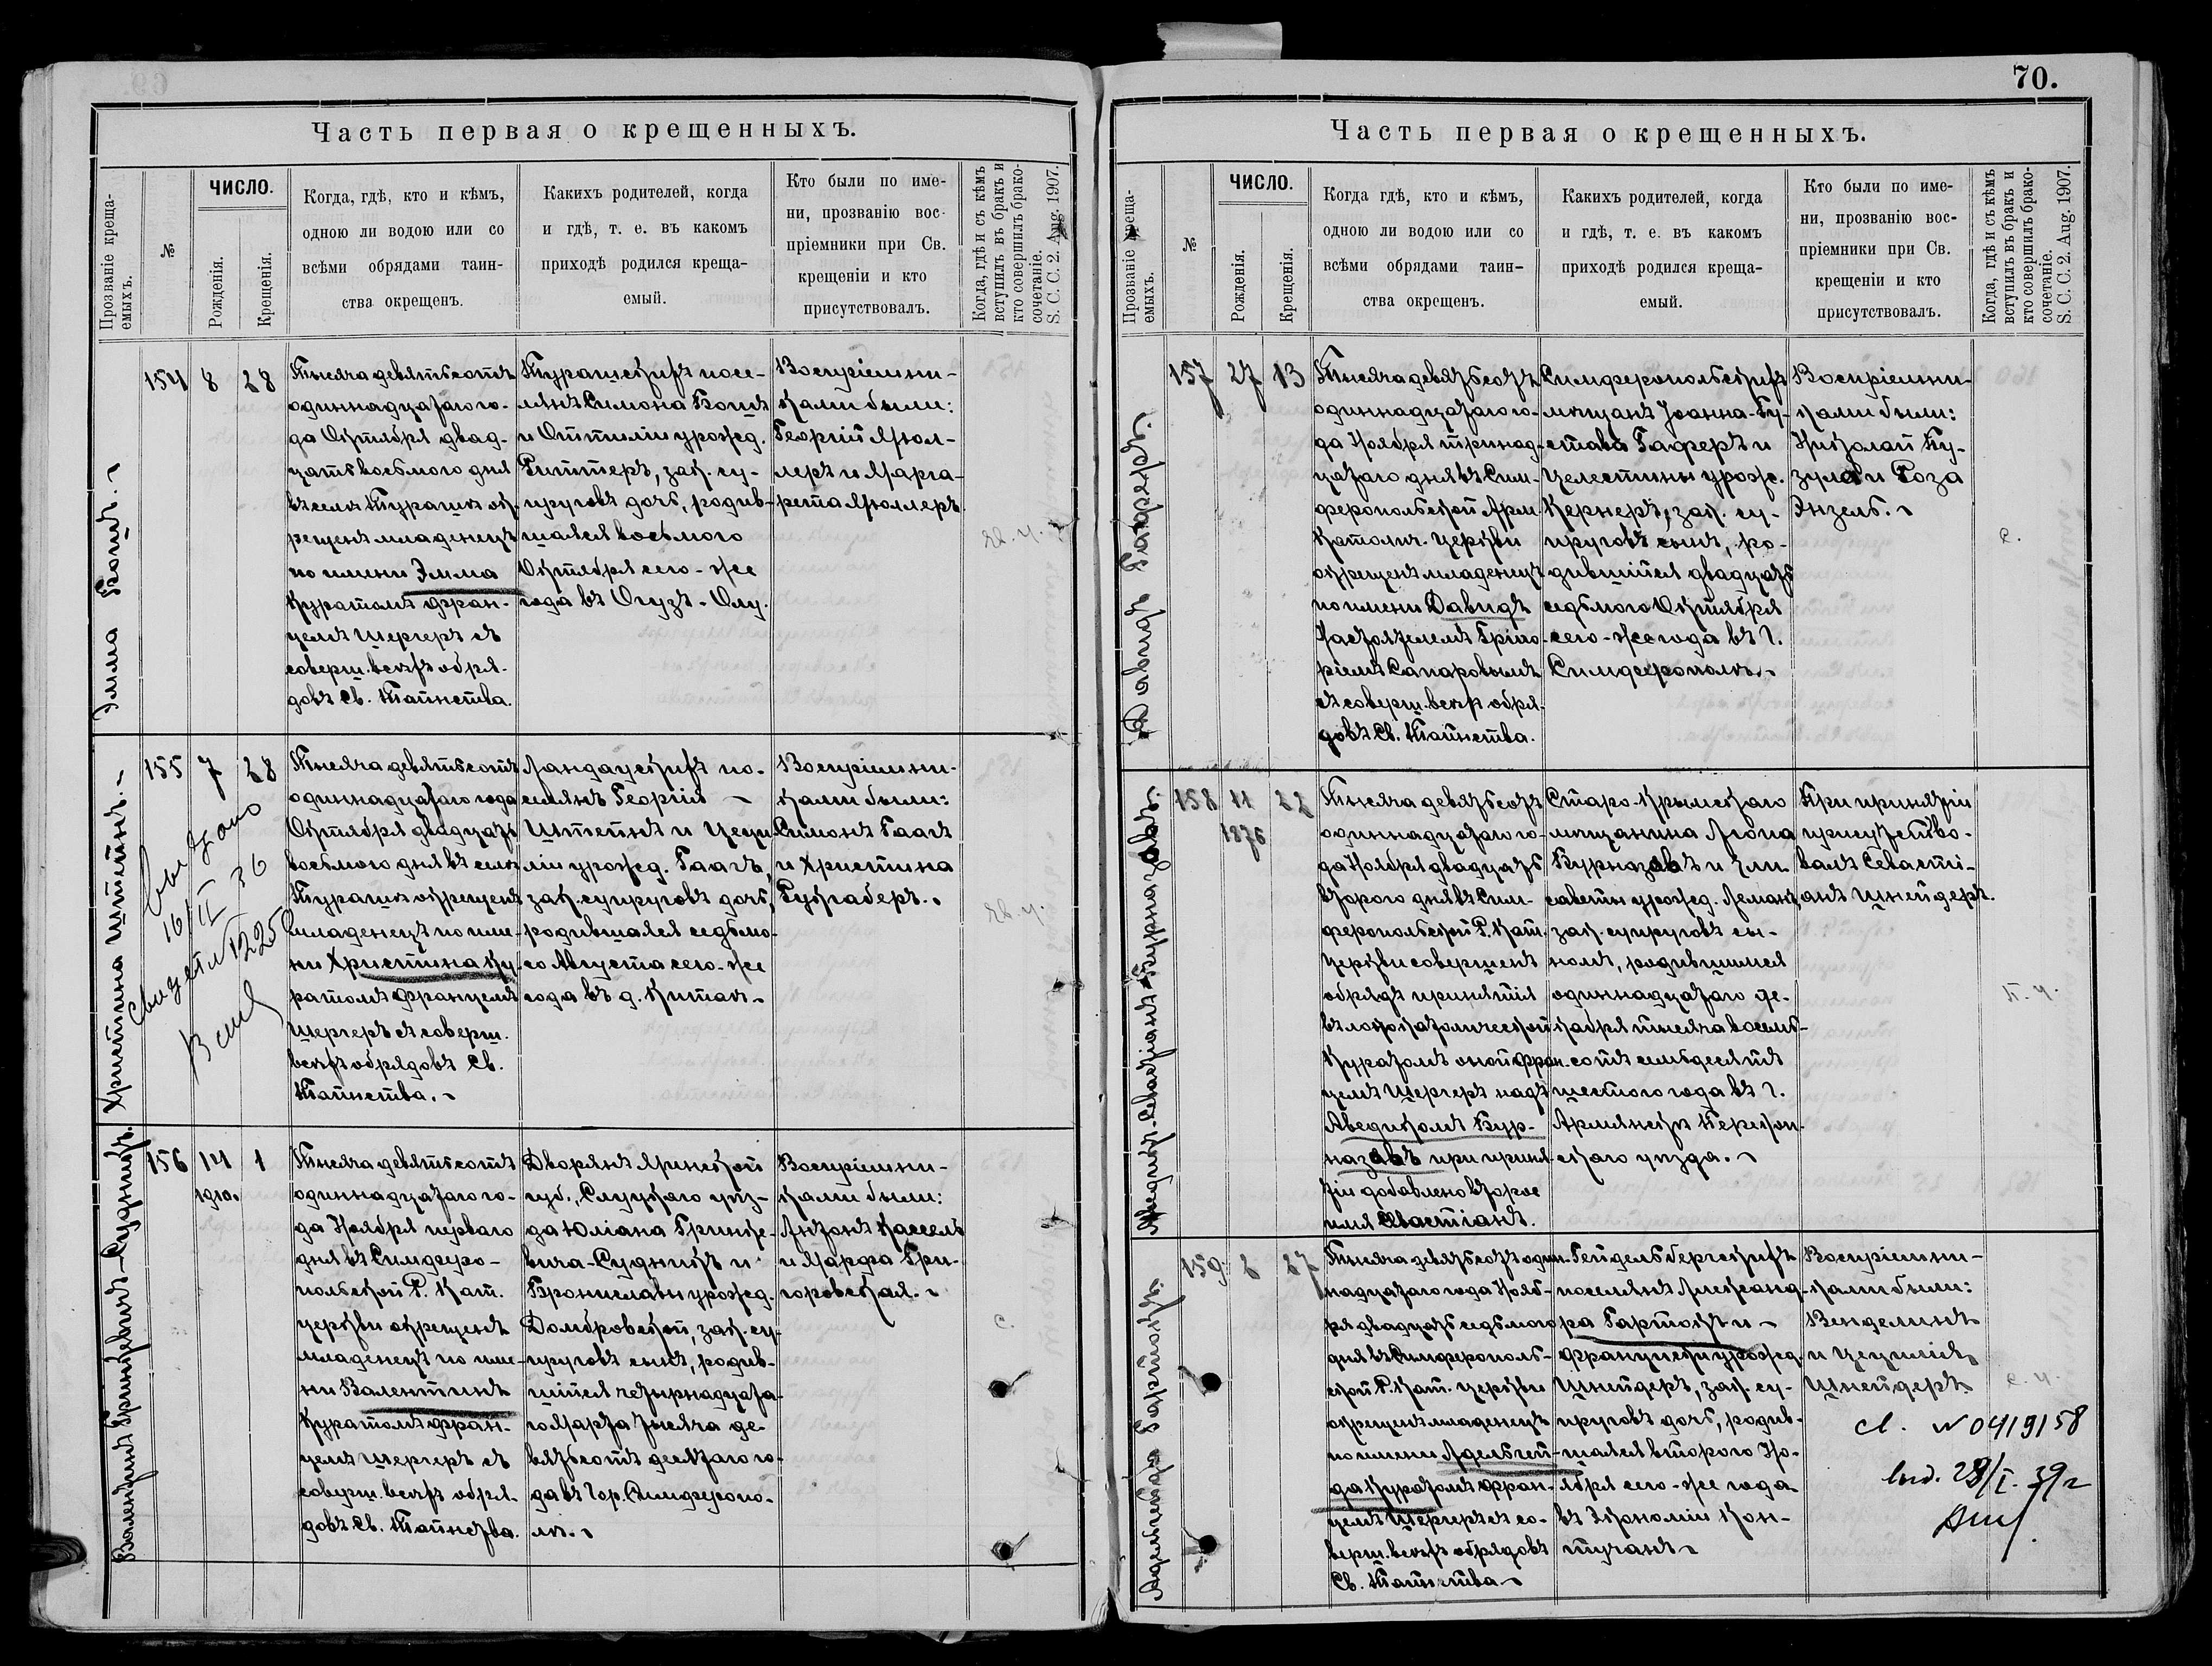 70.
Часть первая о крещенныхъ.
Прозваніе креща-
емыхъ.
№
ЧИСЛО.
Рожденія.
Крещенія.
Когда, гдѣ, кто и кѣмъ,
одною ли водою или со
всѣми обрядами таин-
ства окрещенъ.
Какихъ родителей, когда
и гдѣ, т. е. въ какомъ
приходѣ родился креща-
емый.
Кто были по име-
ни, прозванію вос-
пріемники при Св.
крещеніи и кто
присутствовалъ.
Когда, гдѣ и съ кѣмъ
вступилъ въ бракъ и
кто совершилъ брако-
сочетаніе.
S. C. C. 2. Aug. 1907.
Эмма Бошъ.
154
8
28
Тысяча девятьсотъ
одиннадцатаго го-
да Октября двад-
цать восьмого дня
въ селѣ Турашѣ ок-
рещенъ младенецъ
по имени Эмма
Куратомъ Фран-
цемъ Шерреръ съ
соверш. всѣхъ обря-
довъ Св. Таинства.
Турашскихъ посе-
лянъ Симона Бошъ
и Оттиліи урожд.
Риттеръ, зак. су-
пруговъ дочь, родив-
шаяся восьмого
Октября сего-же
года въ Огузъ-Олу.
Воспріемни-
ками были:
Георгій Мюл-
леръ и Марга-
рета Мюллеръ.
Христина Штейнъ.
155
7
28
Тысяча девятьсотъ
одиннадцатаго года
Октября двадцать
восьмого дня въ селѣ
Турашѣ окрещенъ
младенецъ по име-
ни Христина Ку-
ратомъ Францемъ
Шерреръ съ соверш.
всѣхъ обрядовъ Св.
Таинства.
Ландаускихъ по-
селянъ Георгія
Штейнъ и Цеци-
ліи урожд. Гаагъ,
зак. супруговъ дочь,
родившаяся седьмо-
го Августа сего-же
года въ д. Китай.
Воспріемни-
ками были:
Симонъ Гаагъ
и Христина
16/II 36
Валентинъ Гринцевичъ-Судникъ.
156
14
1910.
1
Тысяча девятьсотъ
одиннадцатаго го-
да Ноября перваго
дня въ Симферо-
польской Р. Кат.
церкви окрещенъ
младенецъ по име-
ни Валентинъ
Куратомъ Фран-
цемъ Шерреръ съ
соверш. всѣхъ обря-
довъ Св. Таинства.
Дворянъ Минской
губ., Слуцкаго уѣз-
да Юліана Гринце-
вича-Судникъ и
Брониславы урожд.
Домбровской, зак. су-
пруговъ сынъ, родив-
шійся четырнадцата-
го Марта тысяча де-
вятьсотъ десятаго го-
да въ гор. Симферопо-
лѣ.
Воспріемни-
ками были:
Антонъ Кассель
и Марфа Гри-
горовская.
Часть первая о крещенныхъ.
Прозваніе креща-
емыхъ.
№
ЧИСЛО.
Рожденія.
Крещенія.
Когда гдѣ, кто и кѣмъ,
одною ли водою или со
всѣми обрядами таин-
ства окрещенъ.
Какихъ родителей, когда
и гдѣ, т. е. въ какомъ
приходѣ родился креща-
емый.
Кто были по име-
ни, прозванію вос-
пріемники при Св.
крещеніи и кто
присутствовалъ.
Когда, гдѣ и съ кѣмъ
вступилъ въ бракъ и
кто совершилъ брако-
сочетаніе.
S. C. C. 2. Aug. 1907.
Давидъ Гаферъ.
157
27
13
Тысяча девятьсотъ
одиннадцатаго го-
да Ноября тринад-
цатаго дня въ Сим-
феропольской Арм.
Католич. церкви
окрещенъ младенецъ
по имени Давидъ
Настоятелемъ Григо-
ріемъ Сапаровымъ
съ соверш. всѣхъ обря-
довъ Св. Таинства.
Симферопольскихъ
мѣщанъ Іоанна-Гу-
става Гаферъ и
Целестины урожд.
Кернеръ, зак. су-
пруговъ сынъ, ро-
дившійся двадцать
седьмого Октября
сего-же года въ г.
Симферополѣ.
Воспріемни-
ками были:
Николай Ку-
и Роза
Энзель.
с.
158
11
1876
22
Тысяча девятьсотъ
одиннадцатаго го-
да Ноября двадцать
второго дня въ Сим-
феропольской Р. Кат.
церкви совершенъ
обрядъ принятія
въ лоно католической
Куратомъ оной Фран-
цемъ Шерреръ надъ
Аведикомъ
при приня-
тіи добавлено второе
имя Севастіанъ.
Старо-Крымскаго
мѣщанина
и Ели-
саветы урожд. Леманъ,
зак. супруговъ сы-
номъ, родившимся
одиннадцатаго де-
кабря тысяча восемь-
сотъ семьдесятъ
шестого года въ г.
Армянскъ Перекоп-
скаго уѣзда.
При принятіи
присутство-
валъ Севасті-
анъ Шнейдеръ.
Аделгейда Гартокъ.
159
2
27
Тысяча девятьсотъ один-
надцатаго года Нояб-
ря двадцать седьмого
дня въ Симферополь-
ской Р. Кат. церкви
окрещенъ младенецъ
по имени Адельгей-
да Куратомъ Фран-
цемъ Шерреръ съ со-
верш. всѣхъ обрядовъ
Св. Таинства.
Гейдельбергскихъ
поселянъ Александ-
ра Гартокъ и
Францишки урожд.
Шнейдеръ, зак. су-
пруговъ дочь, родив-
шаяся второго Но-
ября сего-же года
въ Экономіи Кон-
туганъ.
Воспріемни-
ками были:
Венделинъ
и Цецилія
Шнейдеръ
с. ч.
N 0419158
выд. 28/I. 39г